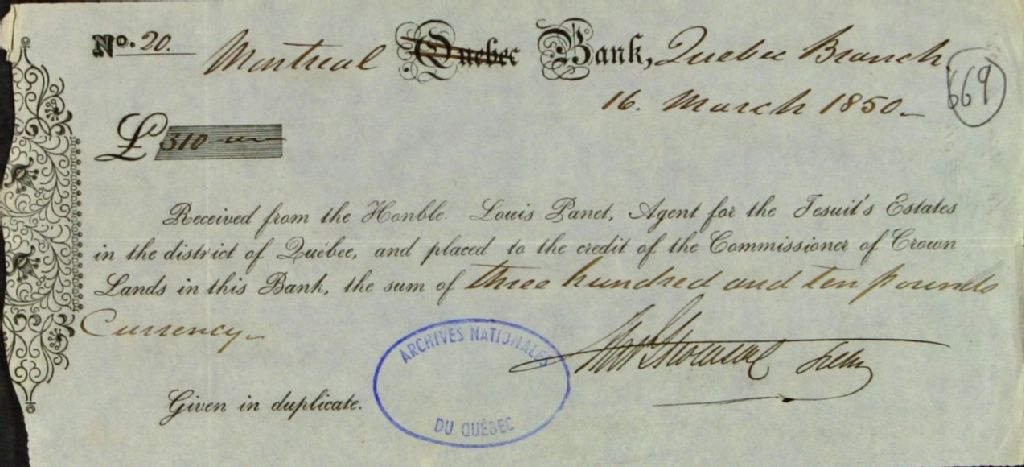 No. 20.
Montreal Quebec Bank, Quebec Branch
669
16. March 1850
£ 310
Received from the Honble. Louis Panet, Agent for the Jesuit's Estates
in the district of Quebec, and placed to the credit of the Commissioner of Crown
Lands in this Bank, the sum of three hundred and ten pounds
Currency
ARCHIVES NATIONALES
DU QUÉBEC
Given in duplicate.